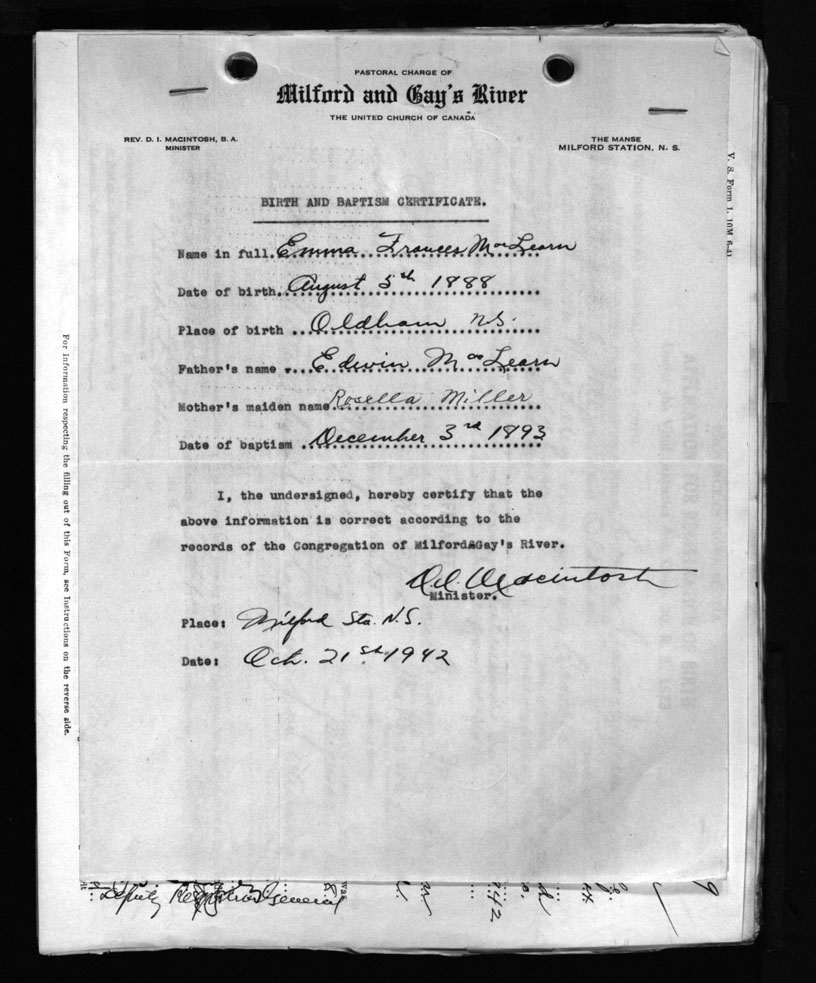 PASTORAL CHARGE OF
Milford and Gay's River
THE UNITED CHURCH OF CANADA
REV. D. I. MACINTOSH, B. A.
MINISTER
THE MANSE
MILFORD STATION, N. S.
V. S. Form 1. 10M 6-41
BIRTH AND BAPTISM CERTIFICATE.
Name in full. Emma Frances MacLearn
Date of birth. August 5th 1888
Place of birth ... Oldham N.S.
Father's name .. Edwin MacLearn
Mother's maiden name Rosella Miller
Date of baptism . December 3rd 1893
I, the undersigned, hereby certify that the
above information is correct according to the
records of the Congregation of Milford&Gay's River.
D.I. Macintosh
Minister.
Place: Milford Sta. N.S.
Date: Oct. 21st. 1942
For information respecting the filling out of this Form, see Instructions on the reverse side.
Deputy Registrar General
was